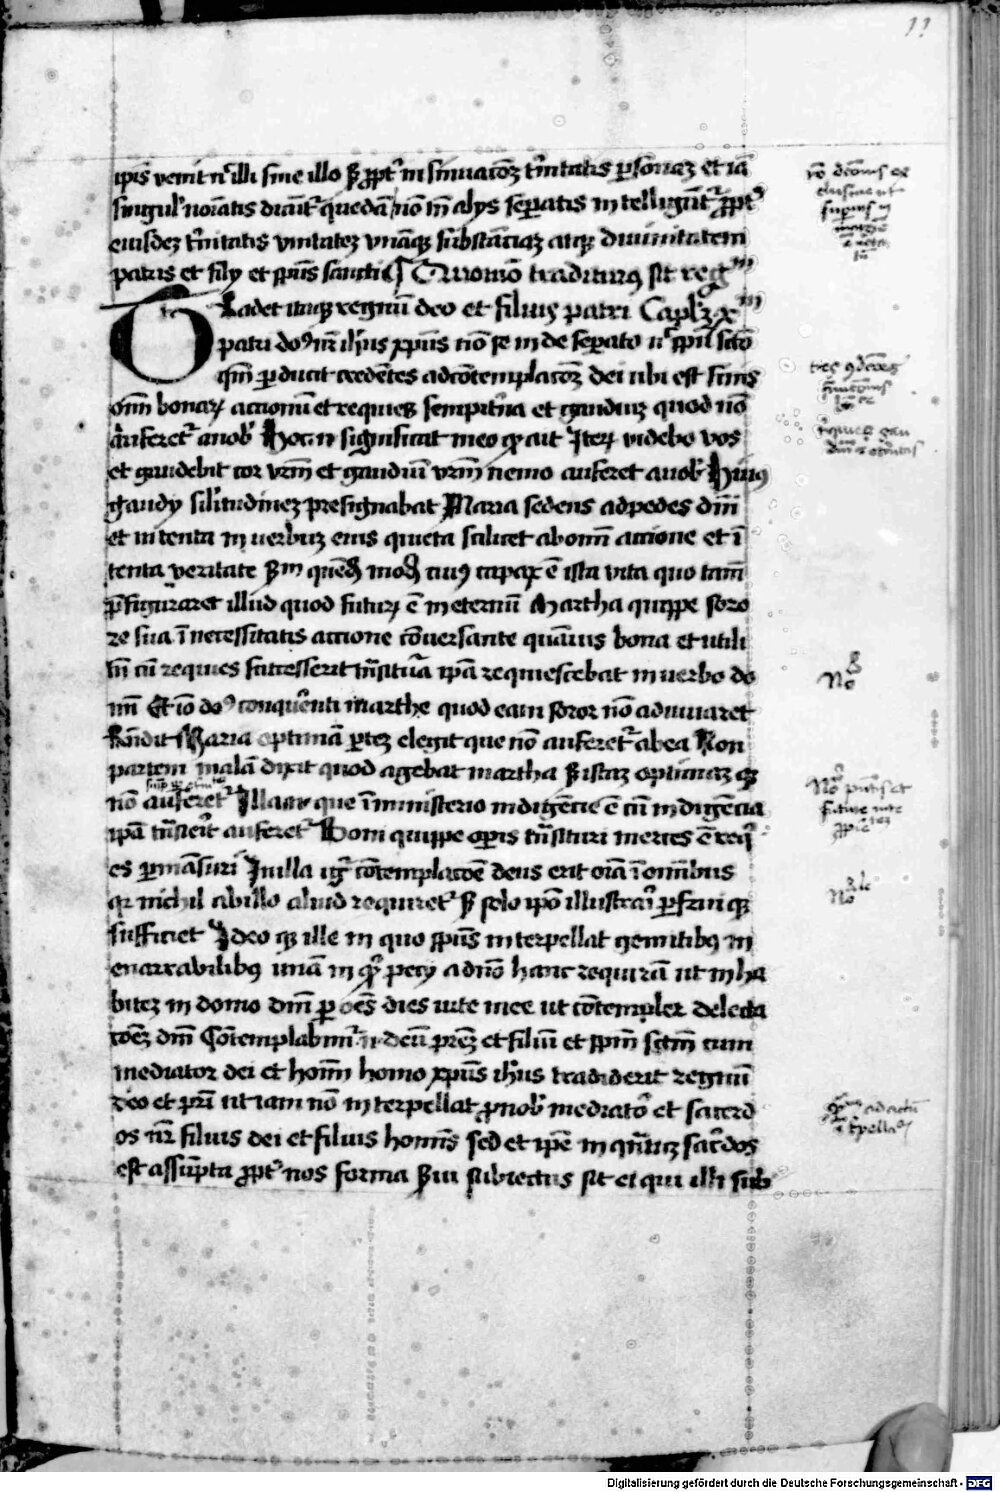 11
ipīs venit nc̄ illi sine illo sꝫ ꝓpt̄ insinuacōꝫ t̄nitatis ꝑsonaꝝ et iā
singul' noīatis dicūt̄ quedā nō tn̄ alijs seꝑatis intelligūt̄ ꝓpt̄
eiusdeꝫ t̄nitatis vnitateꝫ vnāqꝫ substanciaꝫ atqꝫ diuinitatem
patris et filij et spūs sancti ¶ Quomō traditurꝰ sit regm̄
Tradet itaqꝫ regnū deo et filius patri Capl'ꝫ xm
patri doꝰ nr̄ ih'us xpūs nō se inde seꝑato nc̄ spū scō
qn̄ ꝑducit credētes ad cōtemplacōꝫ dei ubi est finis
oīm bonaꝝ accionū et requies sempit̄na et gaudiuꝫ quod nō
auferet̄ a nob' Hoc n̄ significat meo ꝙ ait Iteꝝ videbo vos
et gaudebit cor vrm̄ et gaudiū vrm̄ nemo auferet a nob' Huiꝰ
gaudij sil'itudineꝫ presignabat Maria sedens ad pedes dnī
et intenta in uerbuꝫ eius quieta scilicet ab omī accione et ī
tenta veritate sm quēdā modū cuiꝰ capax ē ista vita quo tam̄
p̄figuraret illud quod futuꝝ ē in eternū Martha quippe soro
re sua ī necessitatis accione cōuersante quāuis bona et utili
tn̄ cū requies successerit t̄nsitura ipā requiescebat in uerbo do
mī Et iō doꝰ conquer̄nti marthe quod eam soror nō adiuuaret
r̄ndit Maria optimā ꝑteꝫ elegit que nō auferet̄ ab ea Non
partem malā dixit quod agebat martha sꝫ istaꝫ optimaꝫ qꝫ
nō auferet̄ Illa n̄ que ī ministerio indigēcie ē cū indigēcia
ipā t̄nsierit auferet̄ Boni quippe oꝑis t̄nsituri merces ē requ
es ꝑmāsuri In illa igr̄ cōtemplacōe deus erit oīa ī omībus
qr nichil ab illo aliud requiret̄ sꝫ solo ipō illustrari ꝑfruiqꝫ
sufficiet Ideoqꝫ ille in quo spūs interpellat gemitibꝰ in
enarrabilibꝰ unā inqt̄ pecij a dnō hanc requirā ut inha
biteꝫ in domo dnī ꝑ oēs dies uite mee ut cōtempler delecta
cōeꝫ dnī Cōtemplabimr̄ n̄ deū prēꝫ et filiū et spm̄ scm̄ cum
mediator dei et homī homo xpūs ih'us tradiderit regnū
deo et prī ut iam nō interpellat ꝓ nob' mediator̄ et sacerd
os nr̄ filius dei et filius homīs sed et ipē in qn̄tuꝫ sac̄dos
est assūpta ꝓpt̄ nos forma sui subiectus sit ei qui illi sub
No
No
Digitalisierung gefördert durch die Deutsche Forschungsgemeinschaft - DFG